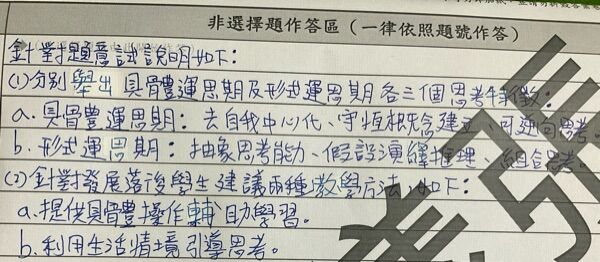 非選擇題作答區（一律依照題號作答）
針對題意試說明如下：
(1)分別舉出具體運思期及形式運思期各三個思考特徵：
a. 具體運思期：去自我中心化、守恆概念建立、可逆向思考。
b. 形式運思期：抽象思考能力、假設演繹推理、組合思考。
(2)針對發展落後學生建議兩種教學方法，如下：
a.提供具體操作輔助學習。
b.利用生活情境引導思考。